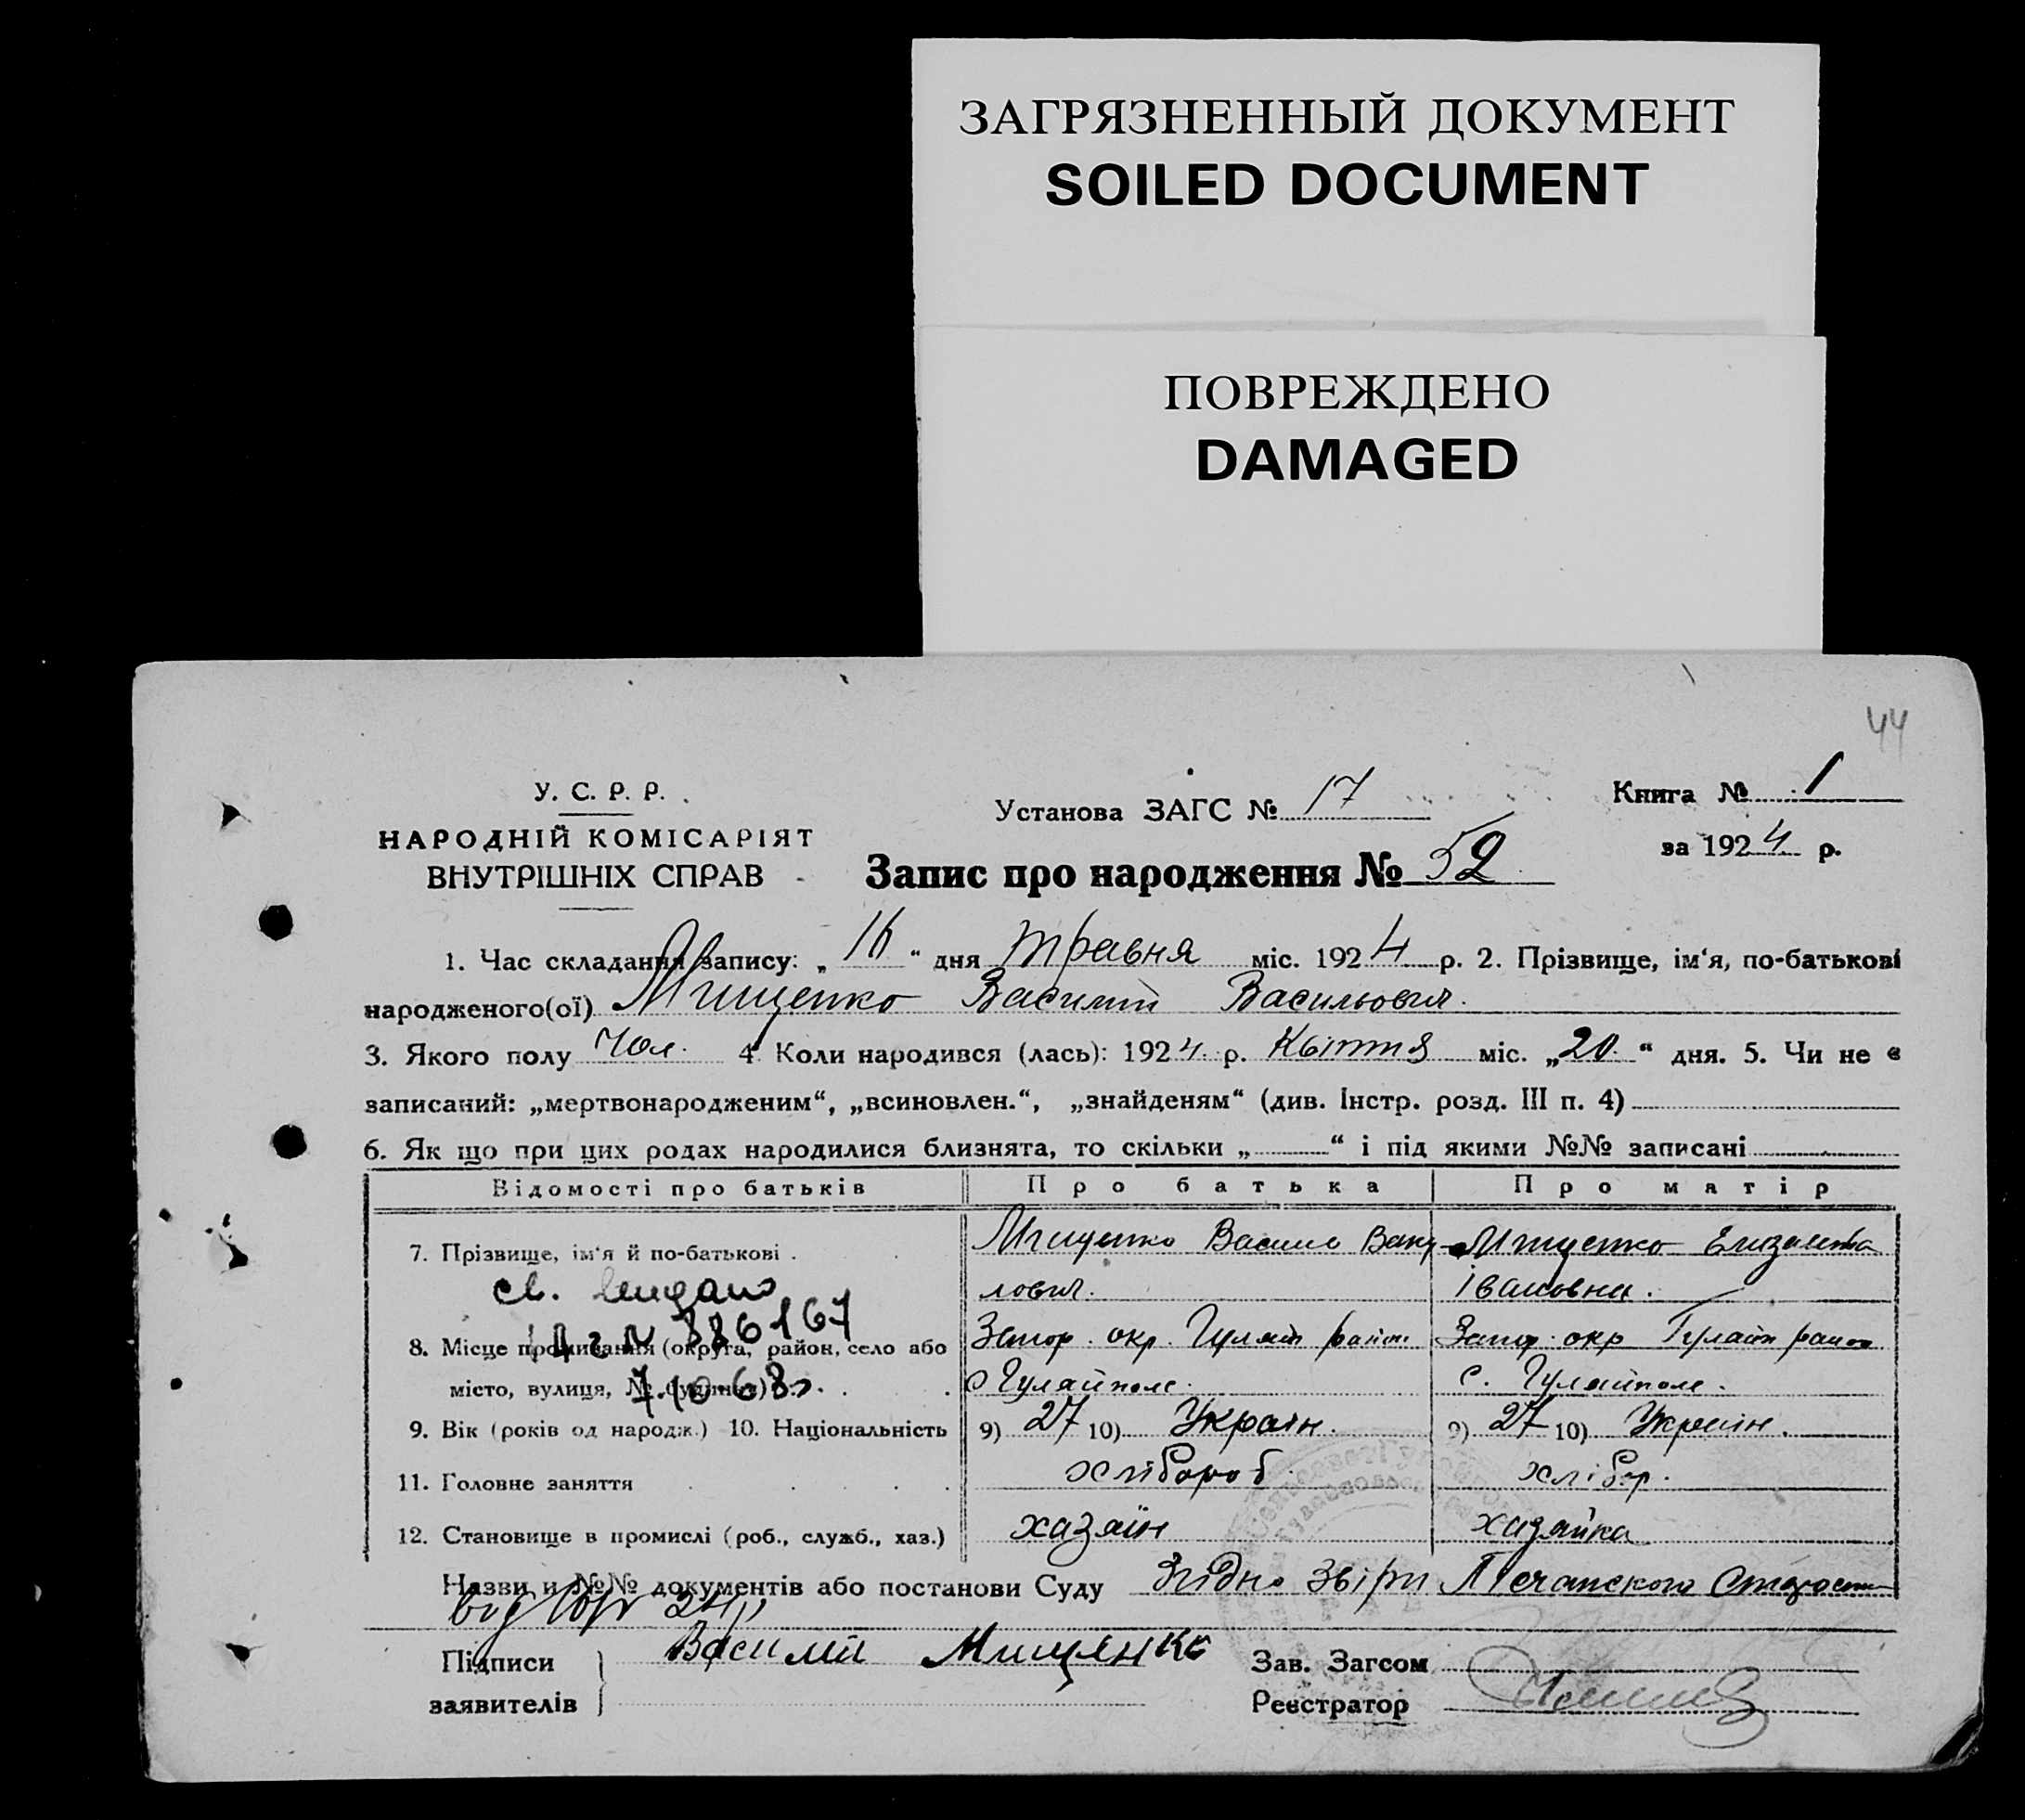 ЗАГРЯЗНЕННЫЙ ДОКУМЕНТ
SOILED DOCUMENT
ПОВРЕЖДЕНО
DAMAGED
44
У. С. Р. Р.
НАРОДНІЙ КОМІСАРІЯТ
ВНУТРІШНІХ СПРАВ
Установа ЗАГС № 17
Запис про народження № 52
Книга № 1
за 1924 р.
1. Час складання запису: „ 16 “ дня травня міс. 1924 р. 2. Прізвище, ім‘я, по-батькові
народженого(ої) Мищенко Василій Васильович.
3. Якого полу Чол. 4. Коли народився (лась): 1924 р. Квітня міс. „20.“ дня. 5. Чи не є
записаний: „мертвонародженим“, „всиновлен.“, „знайденям“ (див. Інстр. розд. III п. 4)
6. Як що при цих родах народилися близнята, то скільки „ “ і під якими №№ записані
Відомості про батьків Про батька Про матір
7. Прізвище, ім‘я й по-батькові . Мищенко Василь Ваку- Мищенко Елизавета
св. видано лович. Івановна.
886167
8. Місце проживання (округа, район, село або Запор. окр. Гуляй район Запор. окр Гуляйп район
місто, вулиця, № будинка) . . . с Гуляйполе. с. Гуляйполе.
7.10.68г.
9. Вік (років од народж.) 10. Національність 9) 27 10) Україн. 9) 27 10) Україн.
11. Головне заняття . . . . хлібороб. хлібор.
12. Становище в промислі (роб., служб., хаз.) хазяїн хазяйка
Назви и №№ документів або постанови Суду Згідно
Підписи заявителів Василій Мищенко
Зав. Загсом
Реєстратор